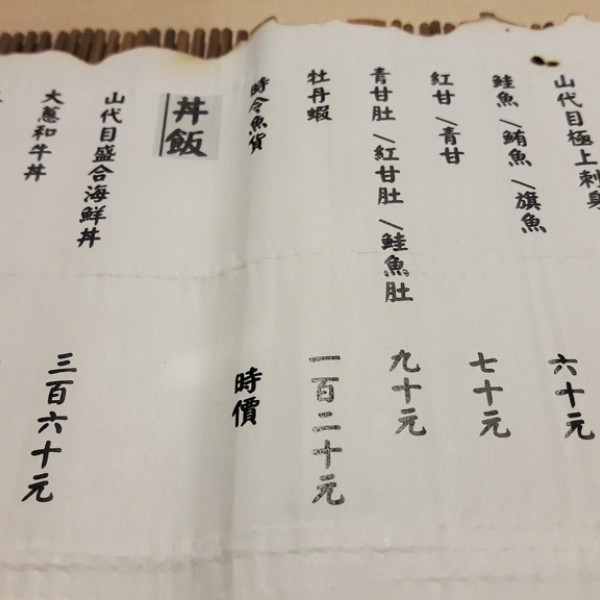 山代目極上刺身
鮭魚/鮪魚/旗魚
六十元
紅甘/青甘
七十元
青甘肚/紅甘肚/鮭魚肚
九十元
牡丹蝦
一百二十元
時令魚貨
時價
丼飯
山代目盛合海鮮丼
三百六十元
大蔥和牛丼